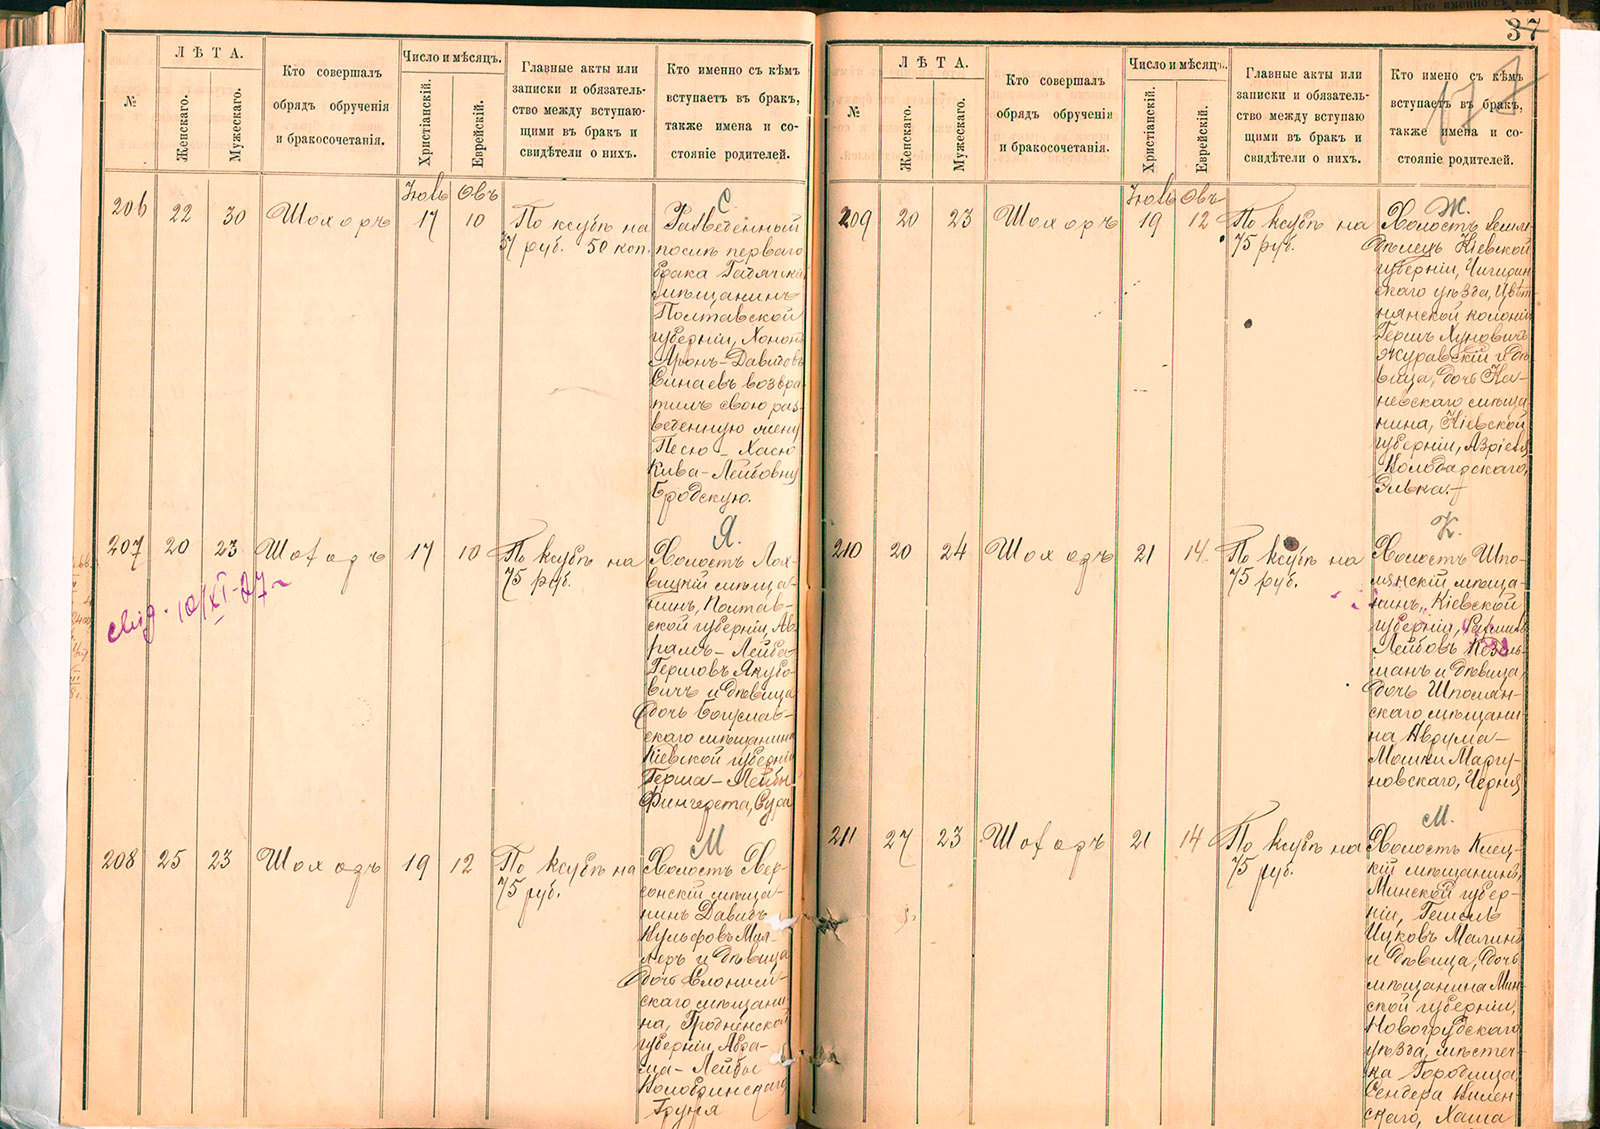 37
№
ЛѢТА.
Женскаго.
Мужескаго.
Кто совершалъ
обрядъ обрученія
и бракосочетанія.
Число и мѣсяцъ.
Христіанскій.
Еврейскій.
Главные акты или
записки и обязатель-
ство между вступаю-
щими въ бракъ и
свидѣтели о нихъ.
Кто именно съ кѣмъ
вступаетъ въ бракъ,
также имена и со-
стояніе родителей.
Іюль Овъ
206 22 30 Шохоръ 17 10
По ксубѣ на
37 руб. 50 коп.
С
Разведенный
послѣ перваго
брака Гадячскій
мѣщанинъ
Полтавской
губерніи, Хононъ
Аронъ-Давидовъ
Синаевъ возвра-
тилъ свою раз-
веденную жену
Песю-Хасю
Кива-Лейбовну
Бродскую.
207 20 23 Шохоръ 17 10
По ксубѣ на
75 руб.
10/XI-27
Я.
Холостъ Лох-
вицкій мѣща-
нинъ, Полтав-
ской губерніи, Аб-
рамъ-Лейба
Гершовъ Якубо-
вичъ и дѣвица
дочь Богуслав-
скаго мѣщанина
Кіевской губерніи
Герша-Лейбы
Фингерета, Сура
208 25 23 Шохоръ 19 12
По ксубѣ на
75 руб.
М
Холостъ Хер-
сонскій мѣща-
нинъ Давидъ
Вульфовъ Мил-
леръ и дѣвица
дочь Слоним-
скаго мѣщани-
на, Гродненской
губерніи, Абра-
ма-Лейбы
Колодзинскаго,
Груня
№
ЛѢТА.
Женскаго.
Мужескаго.
Кто совершалъ
обрядъ обрученія
и бракосочетанія.
Число и мѣсяцъ.
Христіанскій.
Еврейскій.
Главные акты или
записки и обязатель-
ство между вступаю
щими въ бракъ и
свидѣтели о нихъ.
Кто имено съ кѣмъ
вступаетъ въ бракъ,
также имена и со-
стояніе родителей.
Іюль Овъ
209 20 23 Шохоръ 19 12
По ксубѣ на
75 руб.
Ж.
Холостъ земле-
дѣлецъ Кіевской
губерніи, Чигирин-
скаго уѣзда, Цвѣт-
нянской колоніи
Гершъ Хуновичъ
Журавскій и дѣ-
вица, дочь Ка-
невскаго мѣща-
нина, Кіевской
губерніи, Азріеля
Колодарскаго,
Элька.
210 20 24 Шохоръ 21 14
По ксубѣ на
75 руб.
К.
Холостъ Шпо-
лянскій мѣща-
нинъ, Кіевской
губерніи,
Лейбовъ
манъ и дѣвица
дочь Шполян-
скаго мѣщани-
на Аврума-
Мошки Маргу-
новскаго, Черня
211 27 23 Шохоръ 21 14
По ксубѣ на
75 руб.
М.
Холостъ Клец-
кій мѣщанинъ,
Минской губер-
ніи, Гешель
Ицковъ Малинъ
и дѣвица, дочь
мѣщанина Мин-
ской губерніи,
Новогрудскаго
уѣзда, мѣстеч-
ка Городища,
Сендера Вилен-
скаго, Хаша